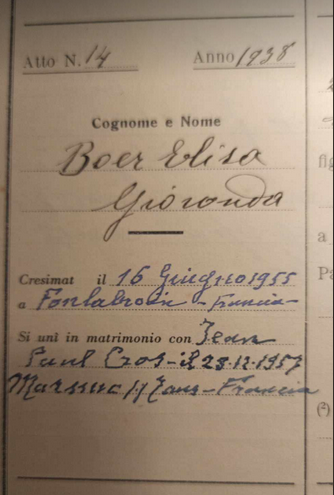 Atto N. 14 Anno 1938
Cognome e Nome
Boer Elisa
Gioconda
Cresimat il 16 Giugno 1955
a - Francia -
Si unì in matrimonio con Jean
Paul Cros - il 28-12-1957
- Francia